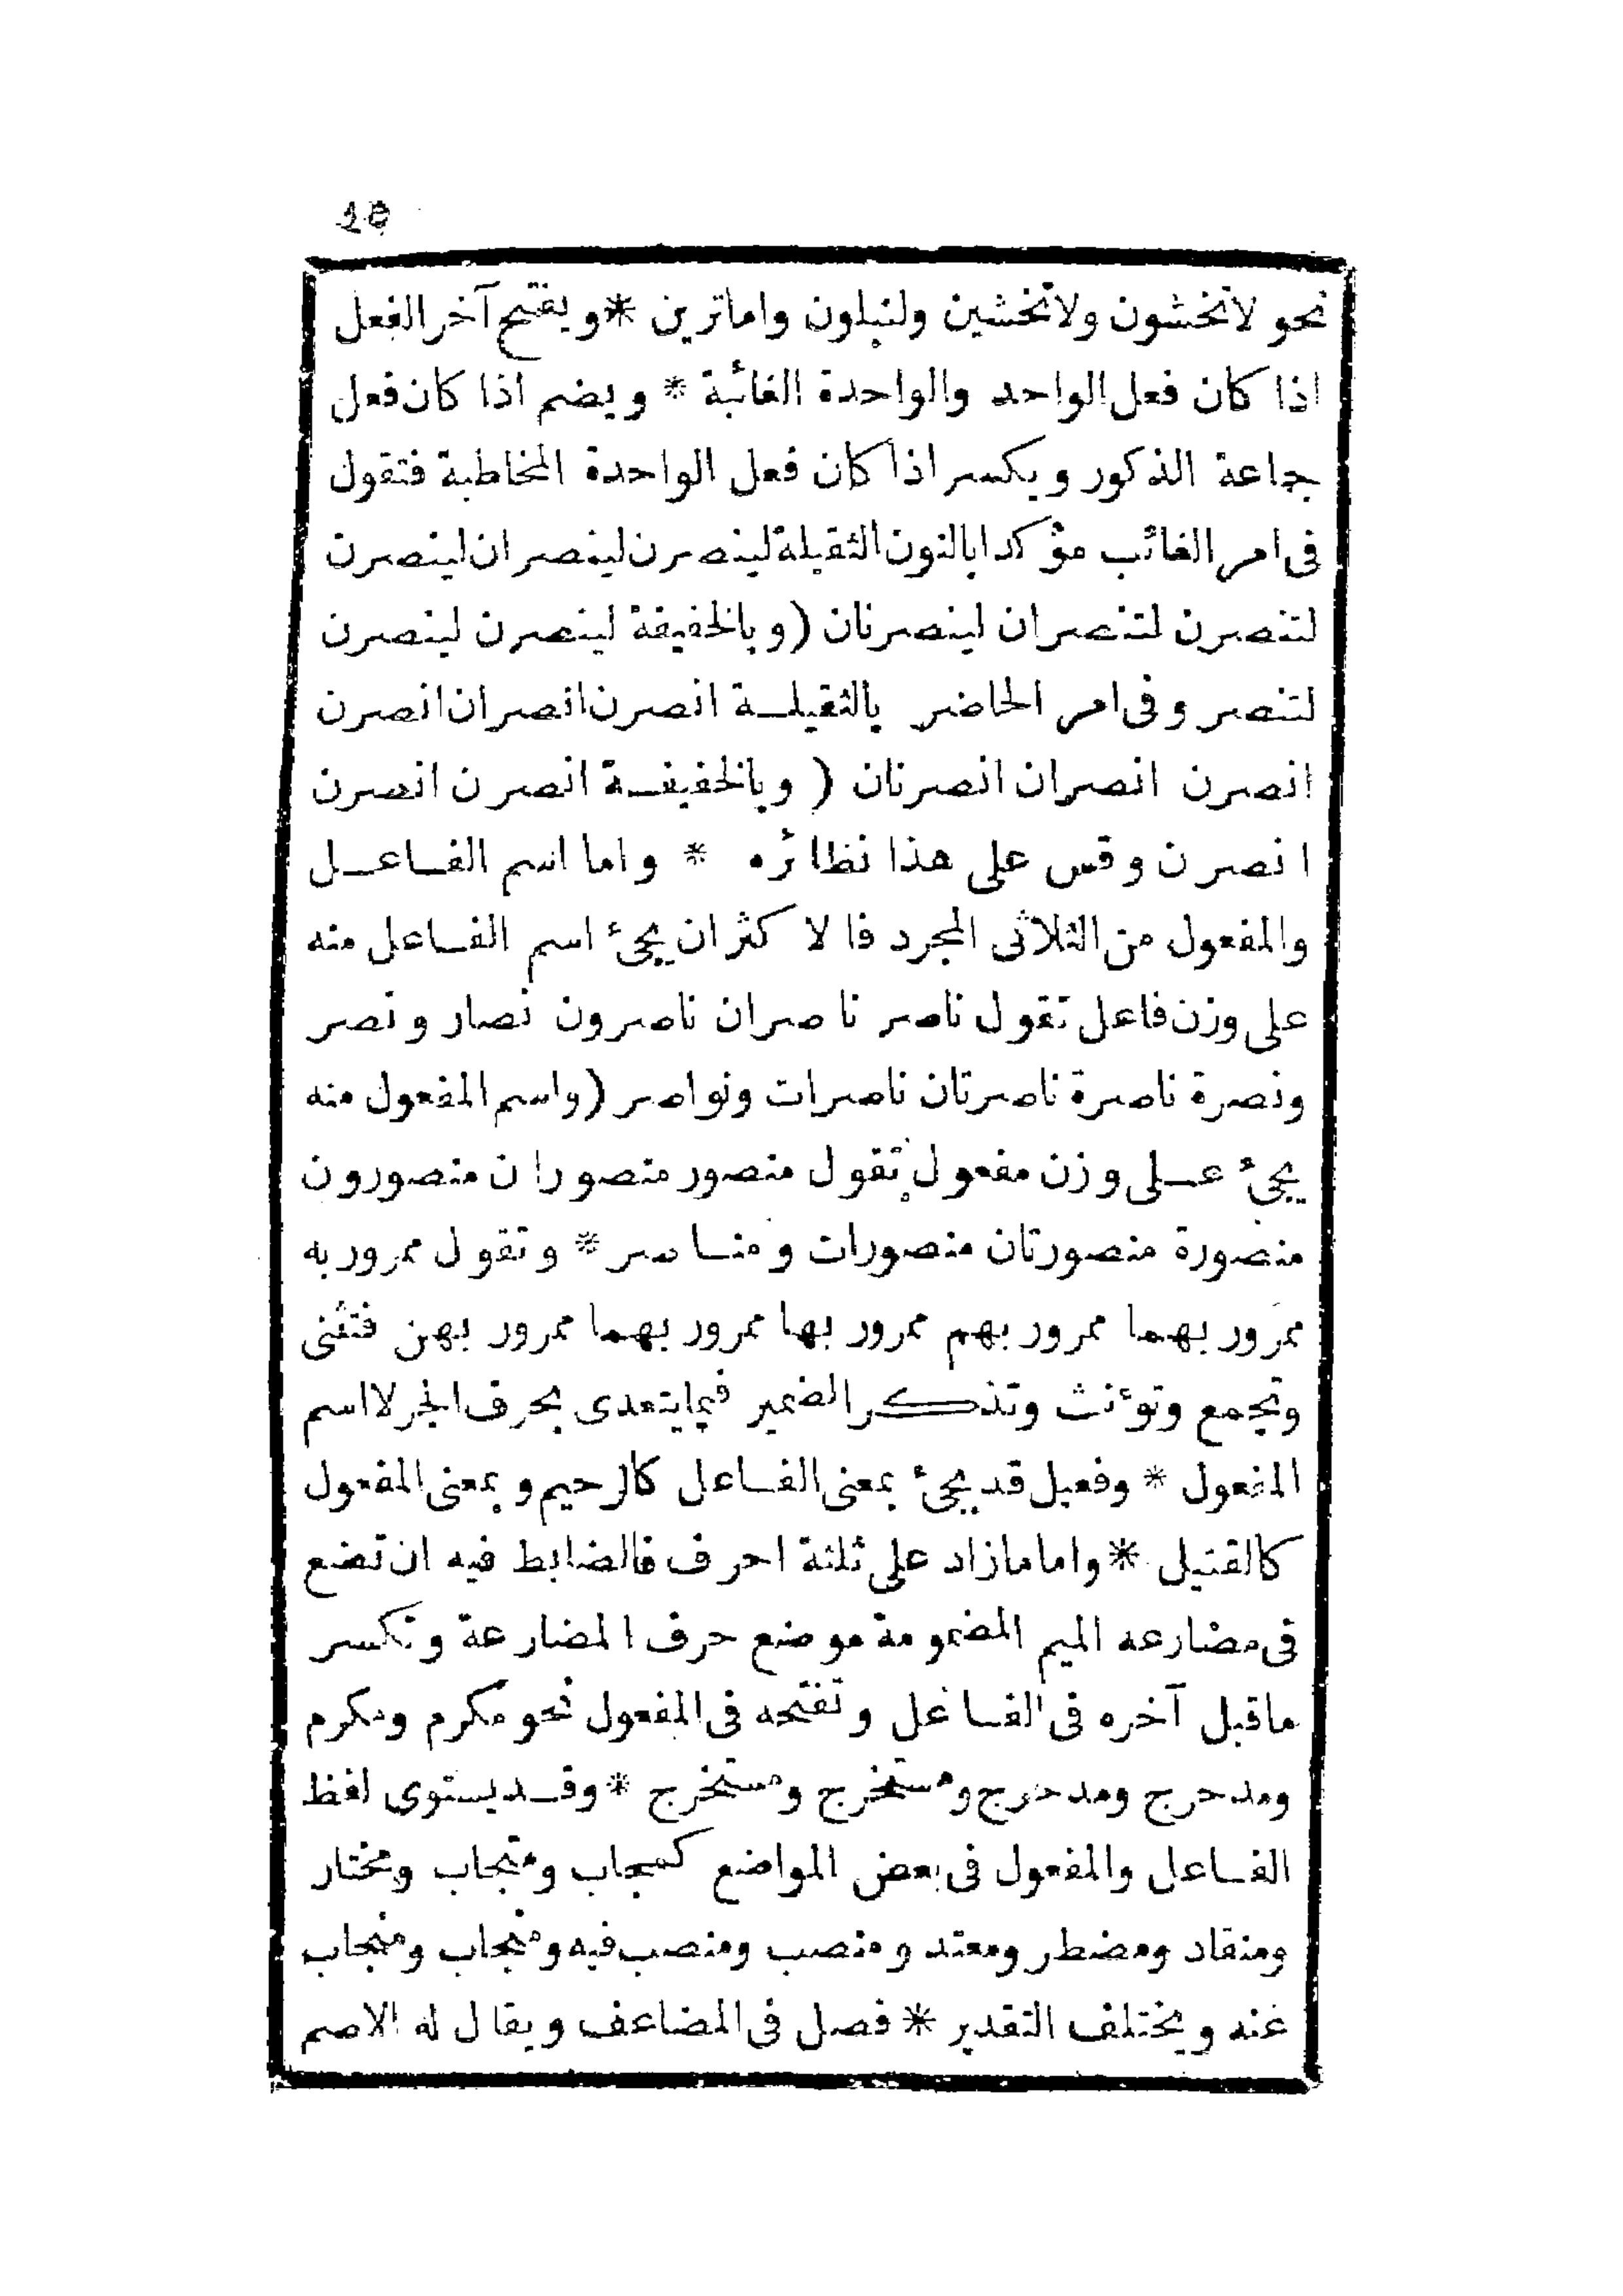 ٤٥
نحو لاتخشون ولاتخشين ولتبلون واماترين * ويفتح آخر الفعل
اذا كان فعل الواحد والواحدة الغائبة * ويضم اذا كان فعل
جماعة الذكور ويكسر اذا كان فعل الواحدة المخاطبة فتقول
فى امر الغائب مؤكدا بالنون الثقيلة لينصرن لينصران لينصرن
لتنصرن لتنصران لينصرنان (وبالخفيفة لينصرن لينصرن
لتنصر وفى امر الحاضر بالثقيلة انصرن انصران انصرن
انصرن انصران انصرنان (وبالخفيفة انصرن انصرن
انصرن وقس على هذا نظائره * واما اسم الفاعل
والمفعول من الثلاثى المجرد فالاكثر ان يجئ اسم الفاعل منه
على وزن فاعل تقول ناصر ناصران ناصرون نصار ونصر
ونصرة ناصرة ناصرتان ناصرات ونواصر (واسم المفعول منه
يجئ على وزن مفعول تقول منصور منصوران منصورون
منصورة منصورتان منصورات ومناصر * وتقول ممرور به
ممرور بهما ممرور بهم ممرور بها ممرور بهما ممرور بهن فتثنى
وتجمع وتؤنث وتذكر الضمير فيما يتعدى بحرف الجر لا اسم
المفعول * وفعيل قد يجئ بمعنى الفاعل كالرحيم وبمعنى المفعول
كالقتيل * واما مازاد على ثلثة احرف فالضابط فيه ان تضع
فى مضارعه الميم المضمومة موضع حرف المضارعة وتكسر
ماقبل آخره فى الفاعل وتفتحه فى المفعول نحو مكرم ومكرم
ومدحرج ومدحرج ومستخرج ومستخرج * وقد يستوى لفظ
الفاعل والمفعول فى بعض المواضع كمحاب ومتحاب ومختار
ومنقاد ومضطر ومعتد ومنصب ومنصب فيه ومنجاب ومنجاب
عنه ويختلف التقدير * فصل فى المضاعف ويقال له الاصم